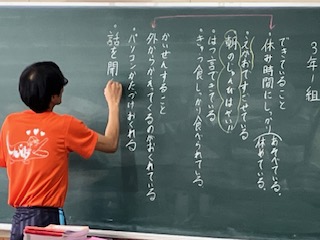 3年1組
できていること
・休み時間にしっかり
あそべている。
休めている。
・えがおですごせている
・朝の
・はつ言できている
・きゅう食しっかり食べられている
かいぜんすること
外からかえってくるのがおくれている
・パソコンがたづけおくれる
・話を聞